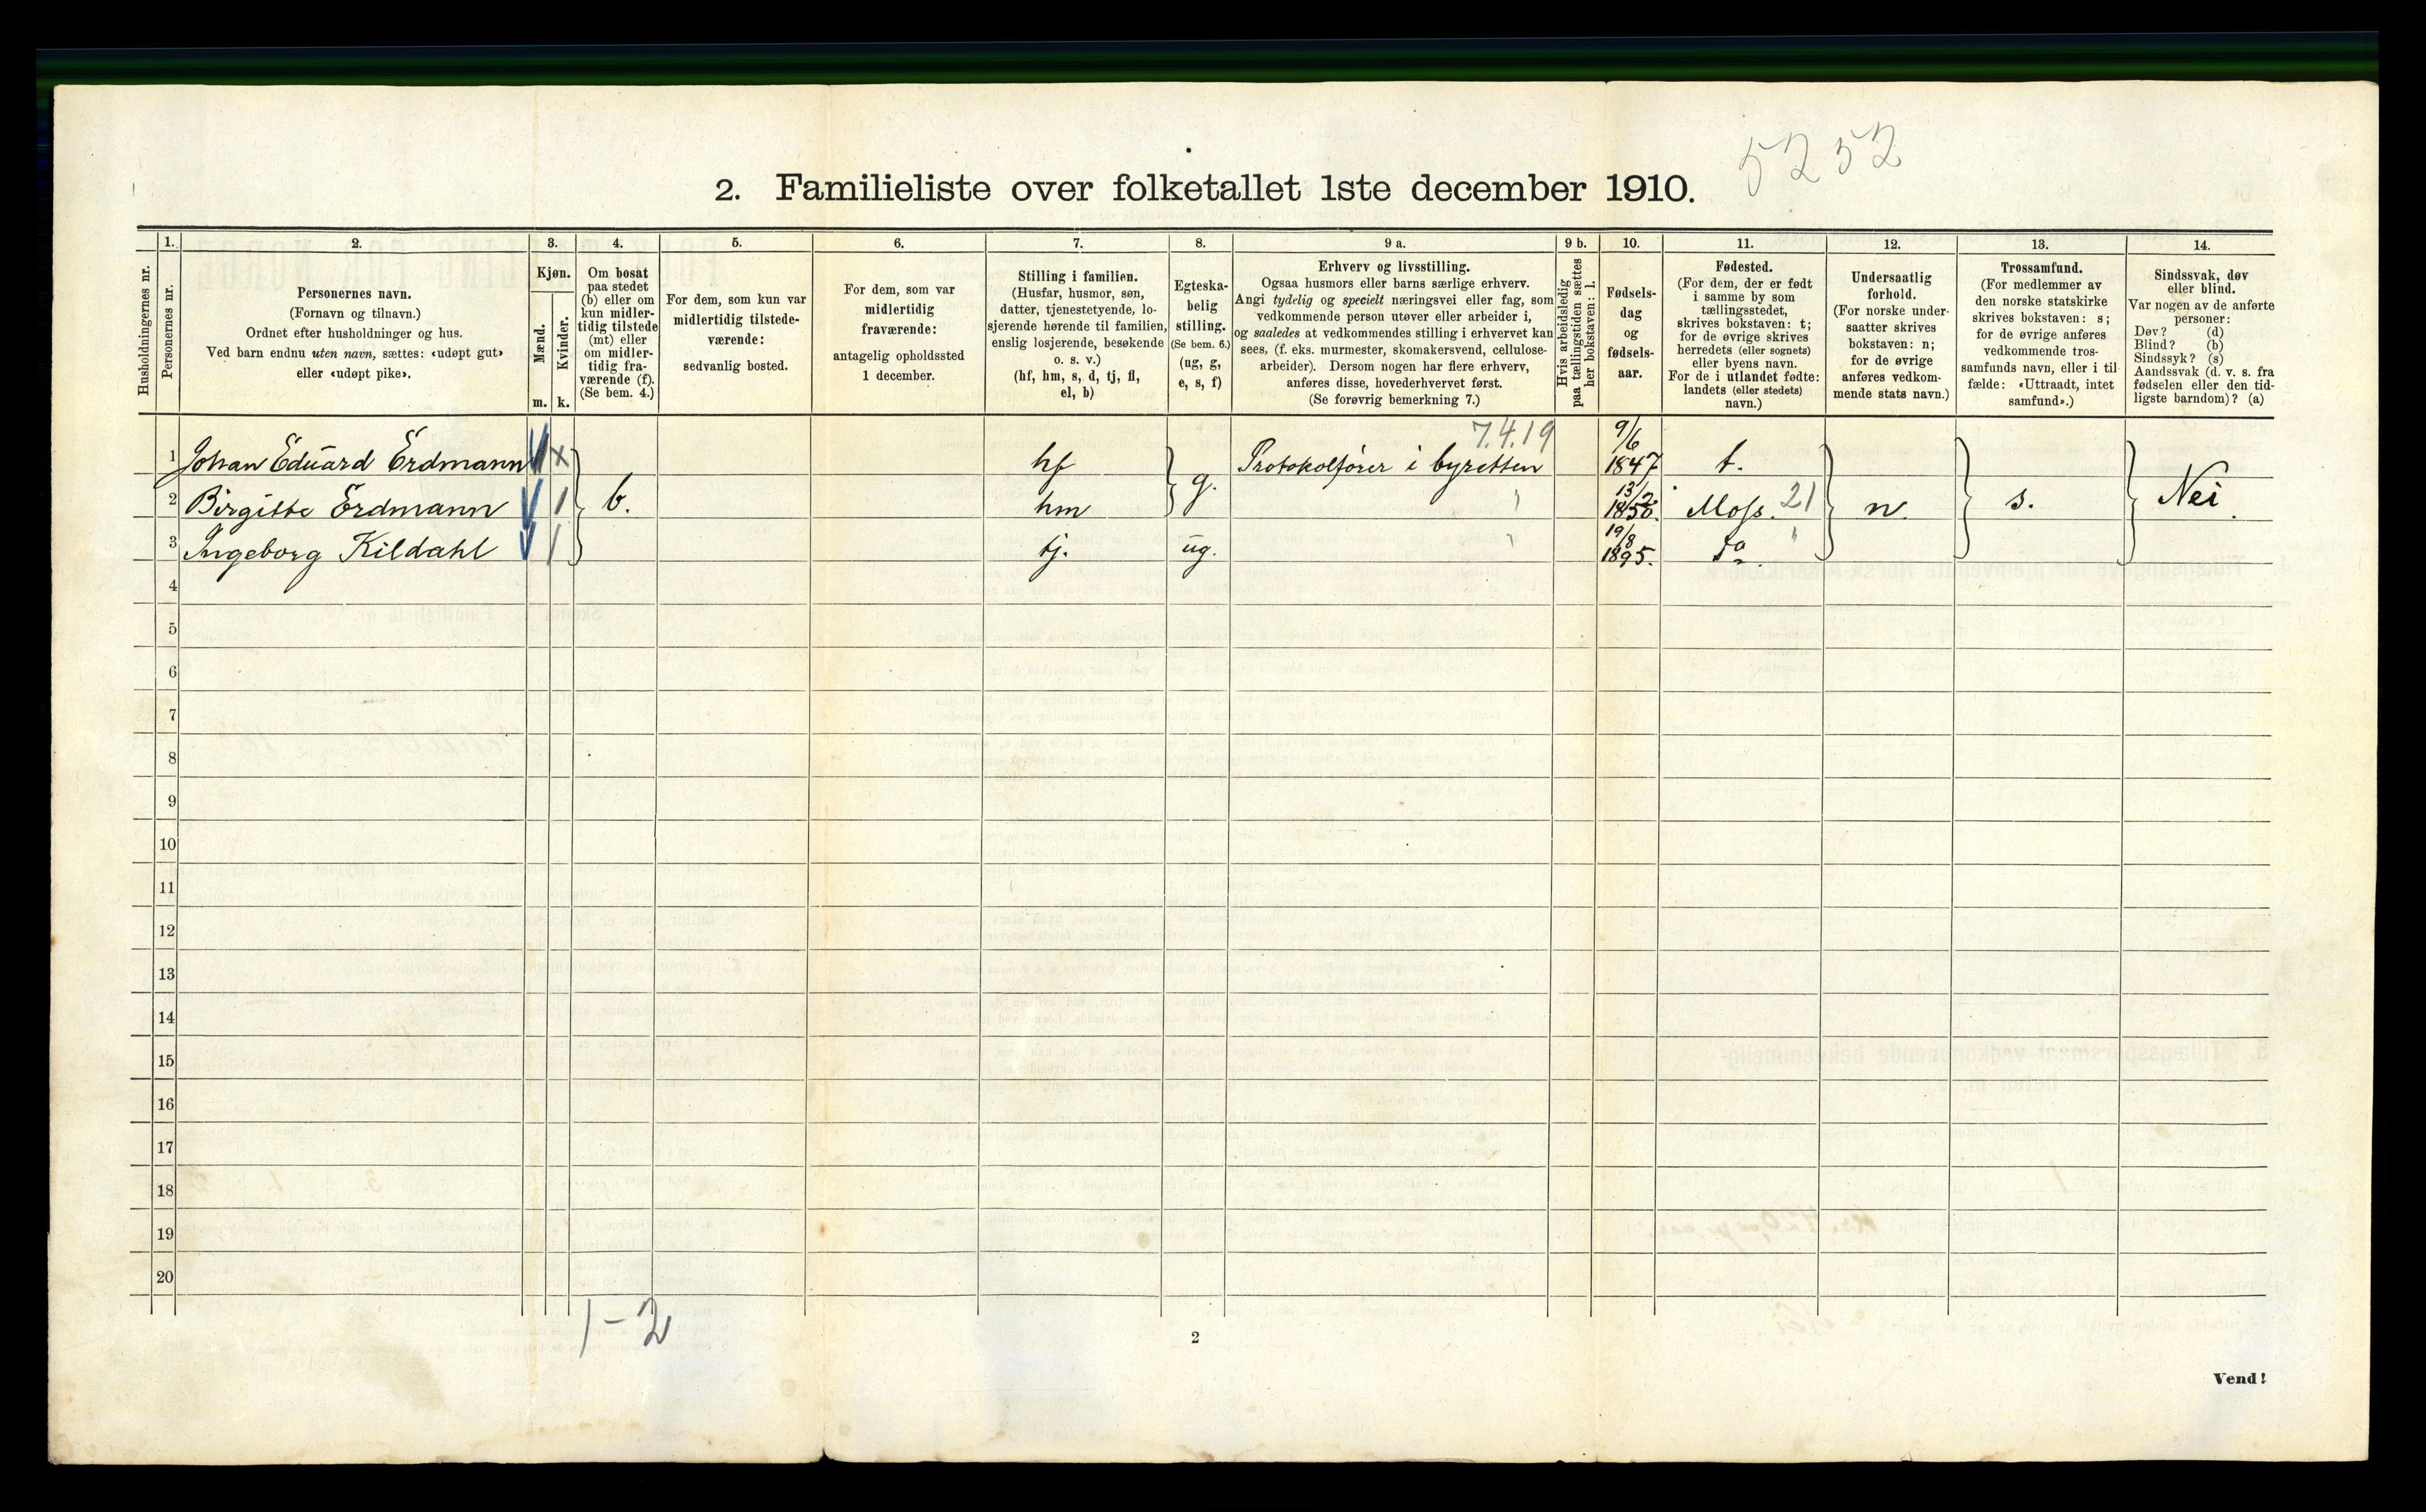 5252
2. Familieliste over folketallet 1ste december 1910.
1. 2. 3. 4. 5. 6. 7. 8. 9 a. 9 b. 10. 11. 12. 13. 14.
Husholdningernes nr.
Personernes nr.
Personernes navn.
(Fornavn og tilnavn.)
Ordnet efter husholdninger og hus.
Ved barn endnu uten navn, sættes: «udøpt gut»
eller «udøpt pike».
Kjøn.
Mænd.
Kvinder.
m. k.
Om bosat
paa stedet
(b) eller om
kun midler-
tidig tilstede
(mt) eller
om midler-
tidig fra-
værende (f).
(Se bem. 4.)
For dem, som kun var
midlertidig tilstede-
værende:
sedvanlig bosted.
For dem, som var
midlertidig
fraværende:
antagelig opholdssted
1 december.
Stilling i familien.
(Husfar, husmor, søn,
datter, tjenestetyende, lo-
sjerende hørende til familien,
enslig losjerende, besøkende
o. s. v.)
(hf, hm, s, d, tj, fl,
el, b)
Egteska-
belig
stilling.
(Se bem. 6.)
(ug, g,
e, s, f)
Erhverv og livsstilling.
Ogsaa husmors eller barns særlige erhverv.
Angi tydelig og specielt næringsvei eller fag, som
vedkommende person utøver eller arbeider i,
og saaledes at vedkommendes stilling i erhvervet kan
sees, (f. eks. murmester, skomakersvend, cellulose-
arbeider). Dersom nogen har flere erhverv,
anføres disse, hovederhvervet først.
(Se forøvrig bemerkning 7.)
Hvis arbeidsledig
paa tællingstiden sættes
her bokstaven: l.
Fødsels-
dag
og
fødsels-
aar.
Fødested.
(For dem, der er født
i samme by som
tællingsstedet,
skrives bokstaven: t;
for de øvrige skrives
herredets (eller sognets)
eller byens navn.
For de i utlandet fødte:
landets (eller stedets)
navn.)
Undersaatlig
forhold.
(For norske under-
saatter skrives
bokstaven: n;
for de øvrige
anføres vedkom-
mende stats navn.)
Trossamfund.
(For medlemmer av
den norske statskirke
skrives bokstaven: s;
for de øvrige anføres
vedkommende tros-
samfunds navn, eller i til-
fælde: «Uttraadt, intet
samfund».)
Sindssvak, døv
eller blind.
Var nogen av de anførte
personer:
Døv? (d)
Blind? (b)
Sindssyk? (s)
Aandssvak (d. v. s. fra
fødselen eller den tid-
ligste barndom)? (a)
7.4.19
1 Johan Eduard Erdmann 1 x hf Protokolfører i byretten 9/6 1847 t.
2 Birgitte Erdmann 1 b. hm g. 13/2 1850. Moss. 21 n. s. Nei.
3 Ingeborg Kildahl 1 tj. ug. 19/8 1895. Do.
4
5
6
7
8
9
10
11
12
13
14
15
16
17
18
19
20
1-2
2
Vend!